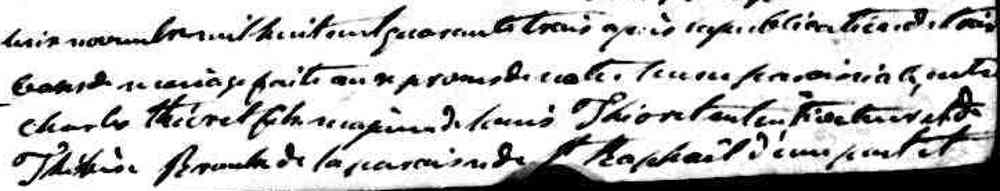 novembre mil huit cent quarante trois après la publication de trois
bans de mariage faite au prône de notre messe paroissiale, entre
Charles Thioret fils majeur de Louis Thioret et de
Thérèse Brouke de la paroisse de St Raphaël d'une part et